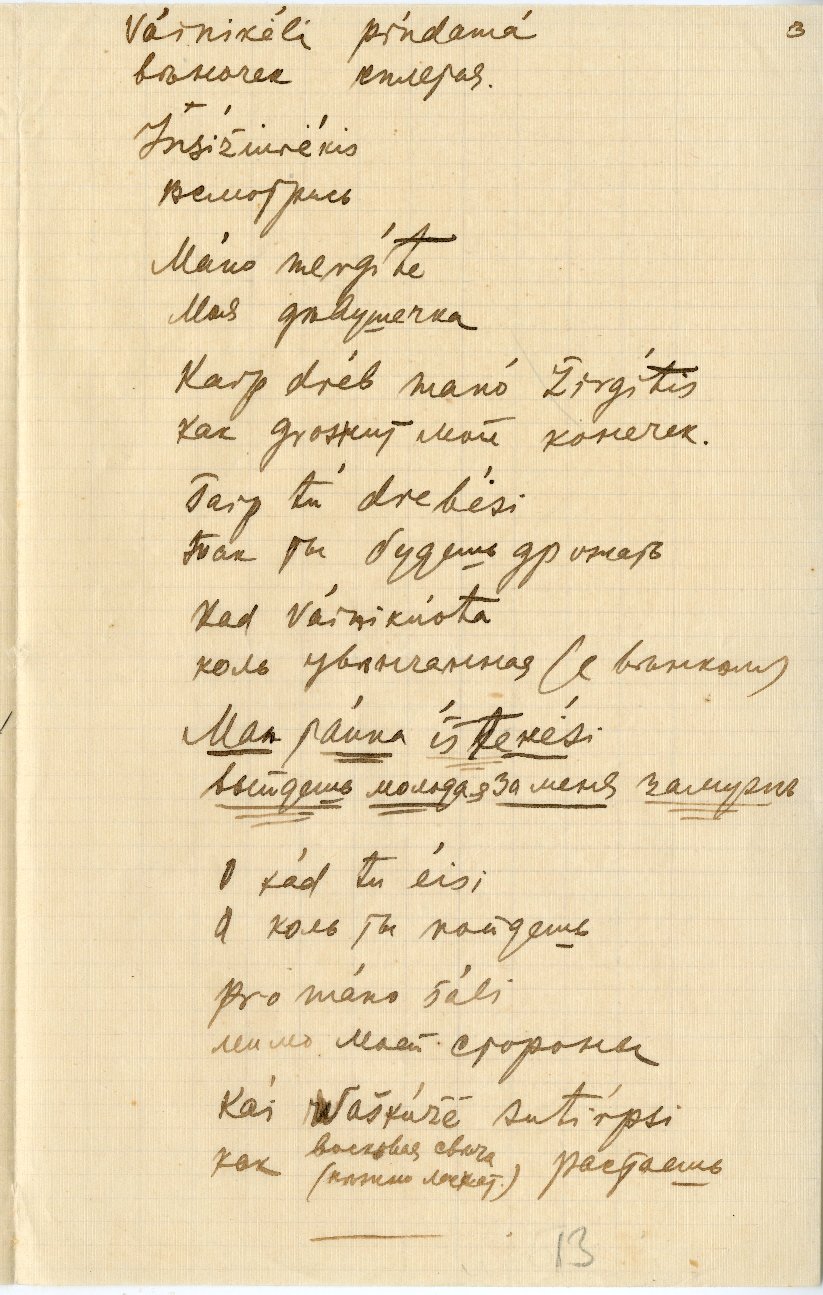 3
Váinikéli píndamá
вѣночек плетая.
Įnsižiurėkis
всмотрись
Máno mergíte
Моя дѣвушечка
Kaip dréb manó žirgítis
как дрожит мой конечек.
Taip tú drebési
Так ты будешь дрожать
Kad váinikúota
коль увѣнчанная (с вѣнком)
Man jáuna iš tekési
выйдешь молодая за меня замужъ
O kád tu éisi
А коль ты пойдешь
pro máno šáli
мимо моей стороны
Kái waškúžė sutírpsi
как восковая свѣча растаешь
13